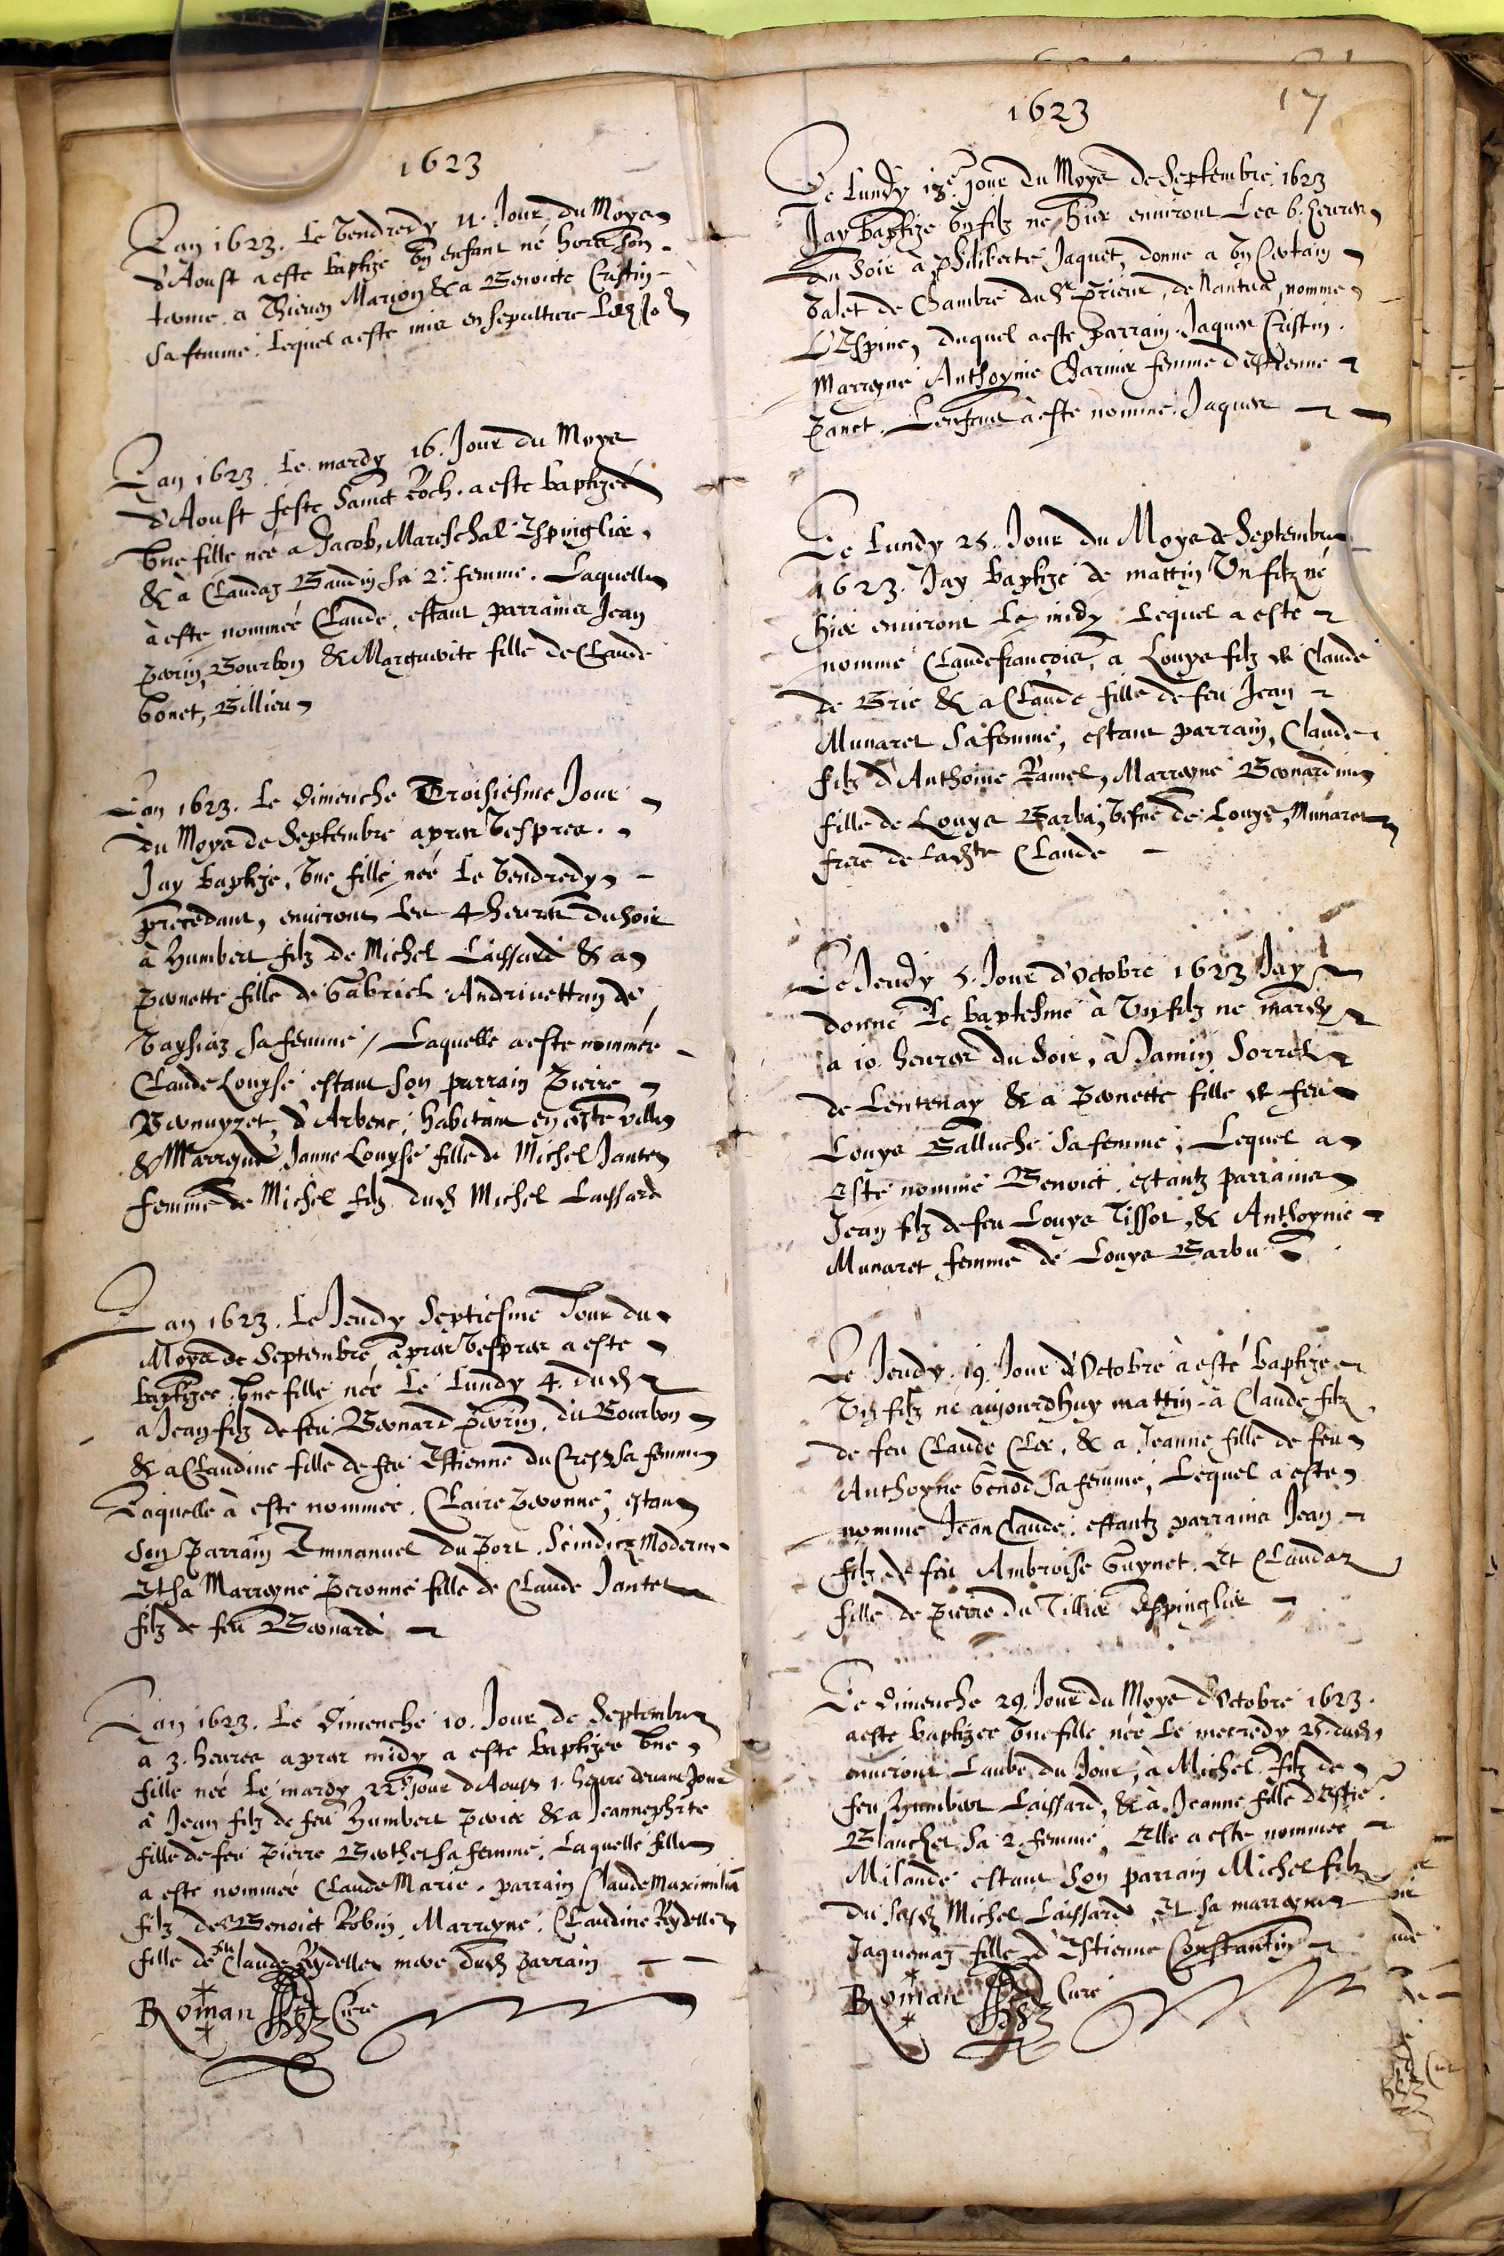 1623
Lan 1623. Le Vendredy 11. Jour du Moys
d'Aoust a este baptize Vn enfant né hors son
terme a Thieven Marion & a Benoicte Cristin
sa femme. Lequel a este mis en sepulture led. Jo
Lan 1623. Le mardy 16. Jour du Moys
d'Aoust feste Sainct Roch. a este baptizée
Vne fille née a Jacob, Mareschal Espinglier,
& à Claudaz Gaudin sa 2e. femme. Laquelle
à este nommée Claude, estant parrains Jean
Perrin, Bourbon & Marguerite fille de Claude
bonet, Billieu
Lan 1623. Le Dimenche Troisiesme Jour
du Moys de Septembre apres Vespres.
Jay baptize, Vne fille née Le Vendredy
precedant, environt Les 4 heures du soir
à Humbert filz de Michel Laissard & a
Pernette fille de Gabriel Andrivettan de
Vaysiaz sa femme / Laquelle a este nommée
Claude Louyse estant son parrain Pierre
d'Arbenc, habitant en ceste ville
& Marreyne Janne Louyse fille de Michel Jantet
femme de Michel filz dud Michel Laissard
Lan 1623. Le Jeudy Septiesme Jour du
Moys de Septembre, apres Vespres a este
baptizee Vne fille née Le Lundy 4. dud
a Jean filz de feu Bernard Perrin, dit Bourbon
& a Claudine fille de feu Estienne du Crest sa femme
Laquelle à este nommée Claire Peronne, estant
son Parrain Emmanuel du Port Scindicq Moderne
Et sa Marreyne Peronne fille de Claude Jantet
filz de feu Bernard
Lan 1623. Le Dimenche 10. Jour de Septembre
a 3. heures apres midy a este baptizee Vne
fille née Le mardy 22e. Jour d'Aoust 1. heure devant Jour
à Jean filz de feu Humbert Perier & a Jeannephrte
fille de feu Pierre Berthet sa femme. Laquelle fille
a este nommée Claude Marie. parrain Claude Maximilian
filz de sr Benoict Robin, Marreyne. Claudine Reydellet
fille de feu Claude Reydellet mere dud parrain
Roman Curé
1623
17
Le Lundy 18e. jour du Moys de Septembre 1623
Jay baptize Vn filz né hier environt Les 6. heures
du soir à Philiberte Jaquet, donne a Vn Certain
Valet de Chambre du Sr Prieur, de Nantua, nomme
L'Espine, duquel a este parrain Jaques Cristin.
Marreyne Anthoynie Charnier femme d'Estienne
Panet. Lenfant à este nomme Jaques
Le Lundy 25. Jour du Moys de Septembre
1623. Jay baptize de mattin Vn filz né
hier environt Le midy Lequel a este
nomme Claudefrançois, a Louys filz de Claude
de Brie & a Claude fille de feu Jean
Munaret sa femme, estant parrain, Claude
filz d'Anthoine Ramel, Marreyne Bernardine
fille de Louys Barba, vefve de Louys Munaret
frere de ladte Claude
Le Jeudy 5. Jour d'Octobre 1623 Jay
donné Le baptesme à Vn filz ne mardy
a 10. heures du soir, à Damin Sorrel
de Lentenay & a Pernette fille de feu
Louys Galluche sa femme, Lequel a
este nommé Benoict, estantz parrains
Jean filz de feu Louys Tissot, & Anthoynie
Munaret femme de Louys Barbu
Le Jeudy 19. Jour d'Octobre à esté baptize
Vn filz né aujourdhuy mattin à Claude filz
de feu Claude Clee, & a Jeanne fille de feu
Anthoyne Genod sa femme, Lequel a este
nommé Jean Claude. estantz parrains Jean
filz de feu Ambroise Guynet. Et Claudaz
fille de Pierre du Tillier Espinglier
Le Dimenche 29. Jour du Moys d'Octobre 1623.
a este baptizee Vne fille née Le mecredy 25. dud
environt Laube du Jour, à Michel filz de
feu Humbert Laissard, & à Jeanne fille d'Estie
Blanchet sa 2. femme, Elle a este nommee
Milande estant son parrain Michel filz
du susd Michel Laissard Et sa marreyne
Jaquemaz fille d'Estienne Constantin
Roman Curé